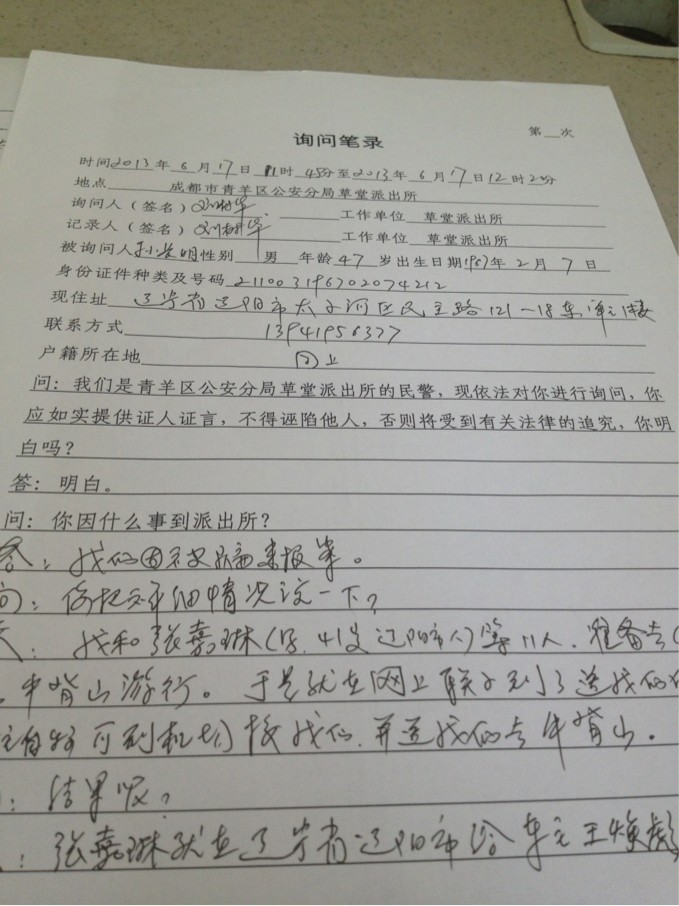 第__次
询问笔录
时间2013年6月17日11时45分至2013年6月17日12时2分
地点 成都市青羊区公安分局草堂派出所
询问人（签名） 工作单位 草堂派出所
记录人（签名） 工作单位 草堂派出所
被询问人 性别 男 年龄47岁出生日期1967年2月7日
身份证件种类及号码 211003196702074212
现住址 辽宁省辽阳市太子河区民主路121-18
联系方式 13941956377
户籍所在地 同上
问：我们是青羊区公安分局草堂派出所的民警，现依法对你进行询问，你
应如实提供证人证言，不得诬陷他人，否则将受到有关法律的追究，你明
白吗？
答：明白。
问：你因什么事到派出所？
答：我们因被骗来报案。
问：你把详细情况说一下？
我和张嘉琳（女，41岁辽阳市人）等11人，准备去
牛背山游行。于是就在网上联系到了送我们
可到机场接我们，并送我们去牛背山。
：结果呢？
：张嘉琳就在辽宁省辽阳市给车主王焕彪